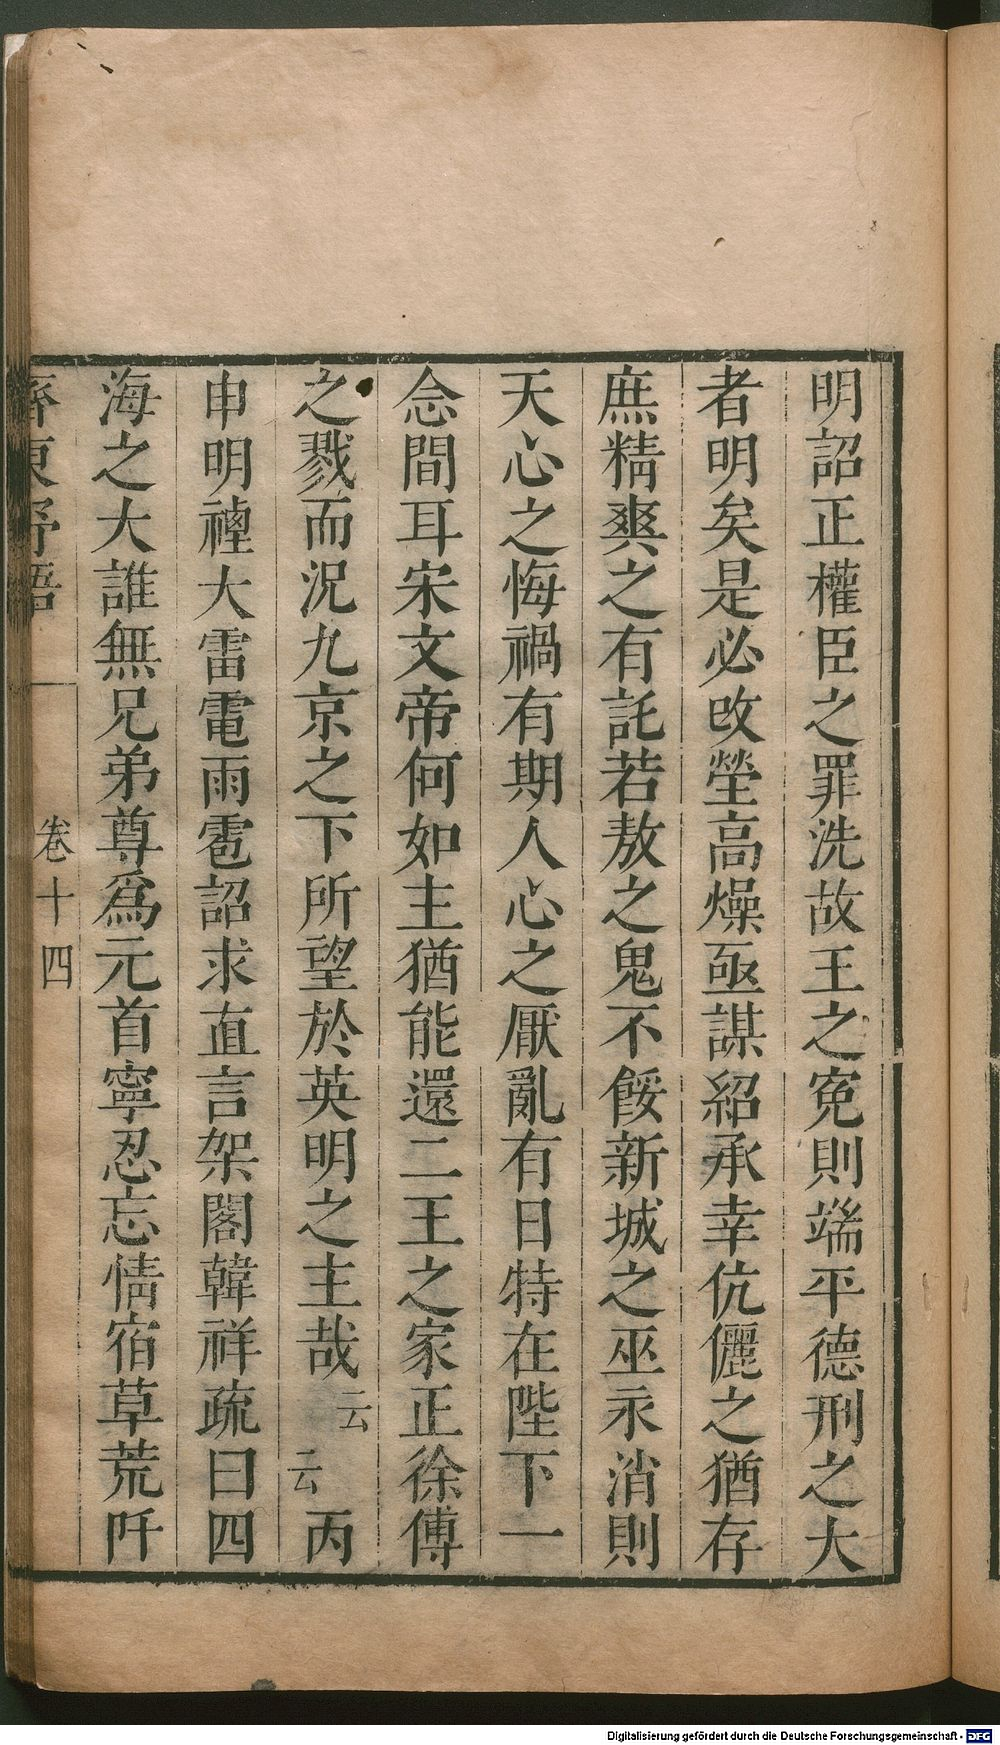 明詔正權臣之罪洗故王之寃則端平德刑之大
者明矣是必改塋高燥亟謀紹承幸伉儷之猶存
庶精爽之有託若敖之鬼不餒新城之巫永消則
天心之悔禍有期人心之厭亂有日特在陛下一
念間耳宋文帝何如主猶能還二王之家正徐傅
之戮而況九京之下所望於英明之主哉云云丙
申明禋大雷電雨雹詔求直言架閣韓祥疏曰四
海之大誰無兄弟尊爲元首寧忍忘情宿草荒阡
齊東野語 卷十四
Digitalisierung gefördert durch die Deutsche Forschungsgemeinschaft - DFG